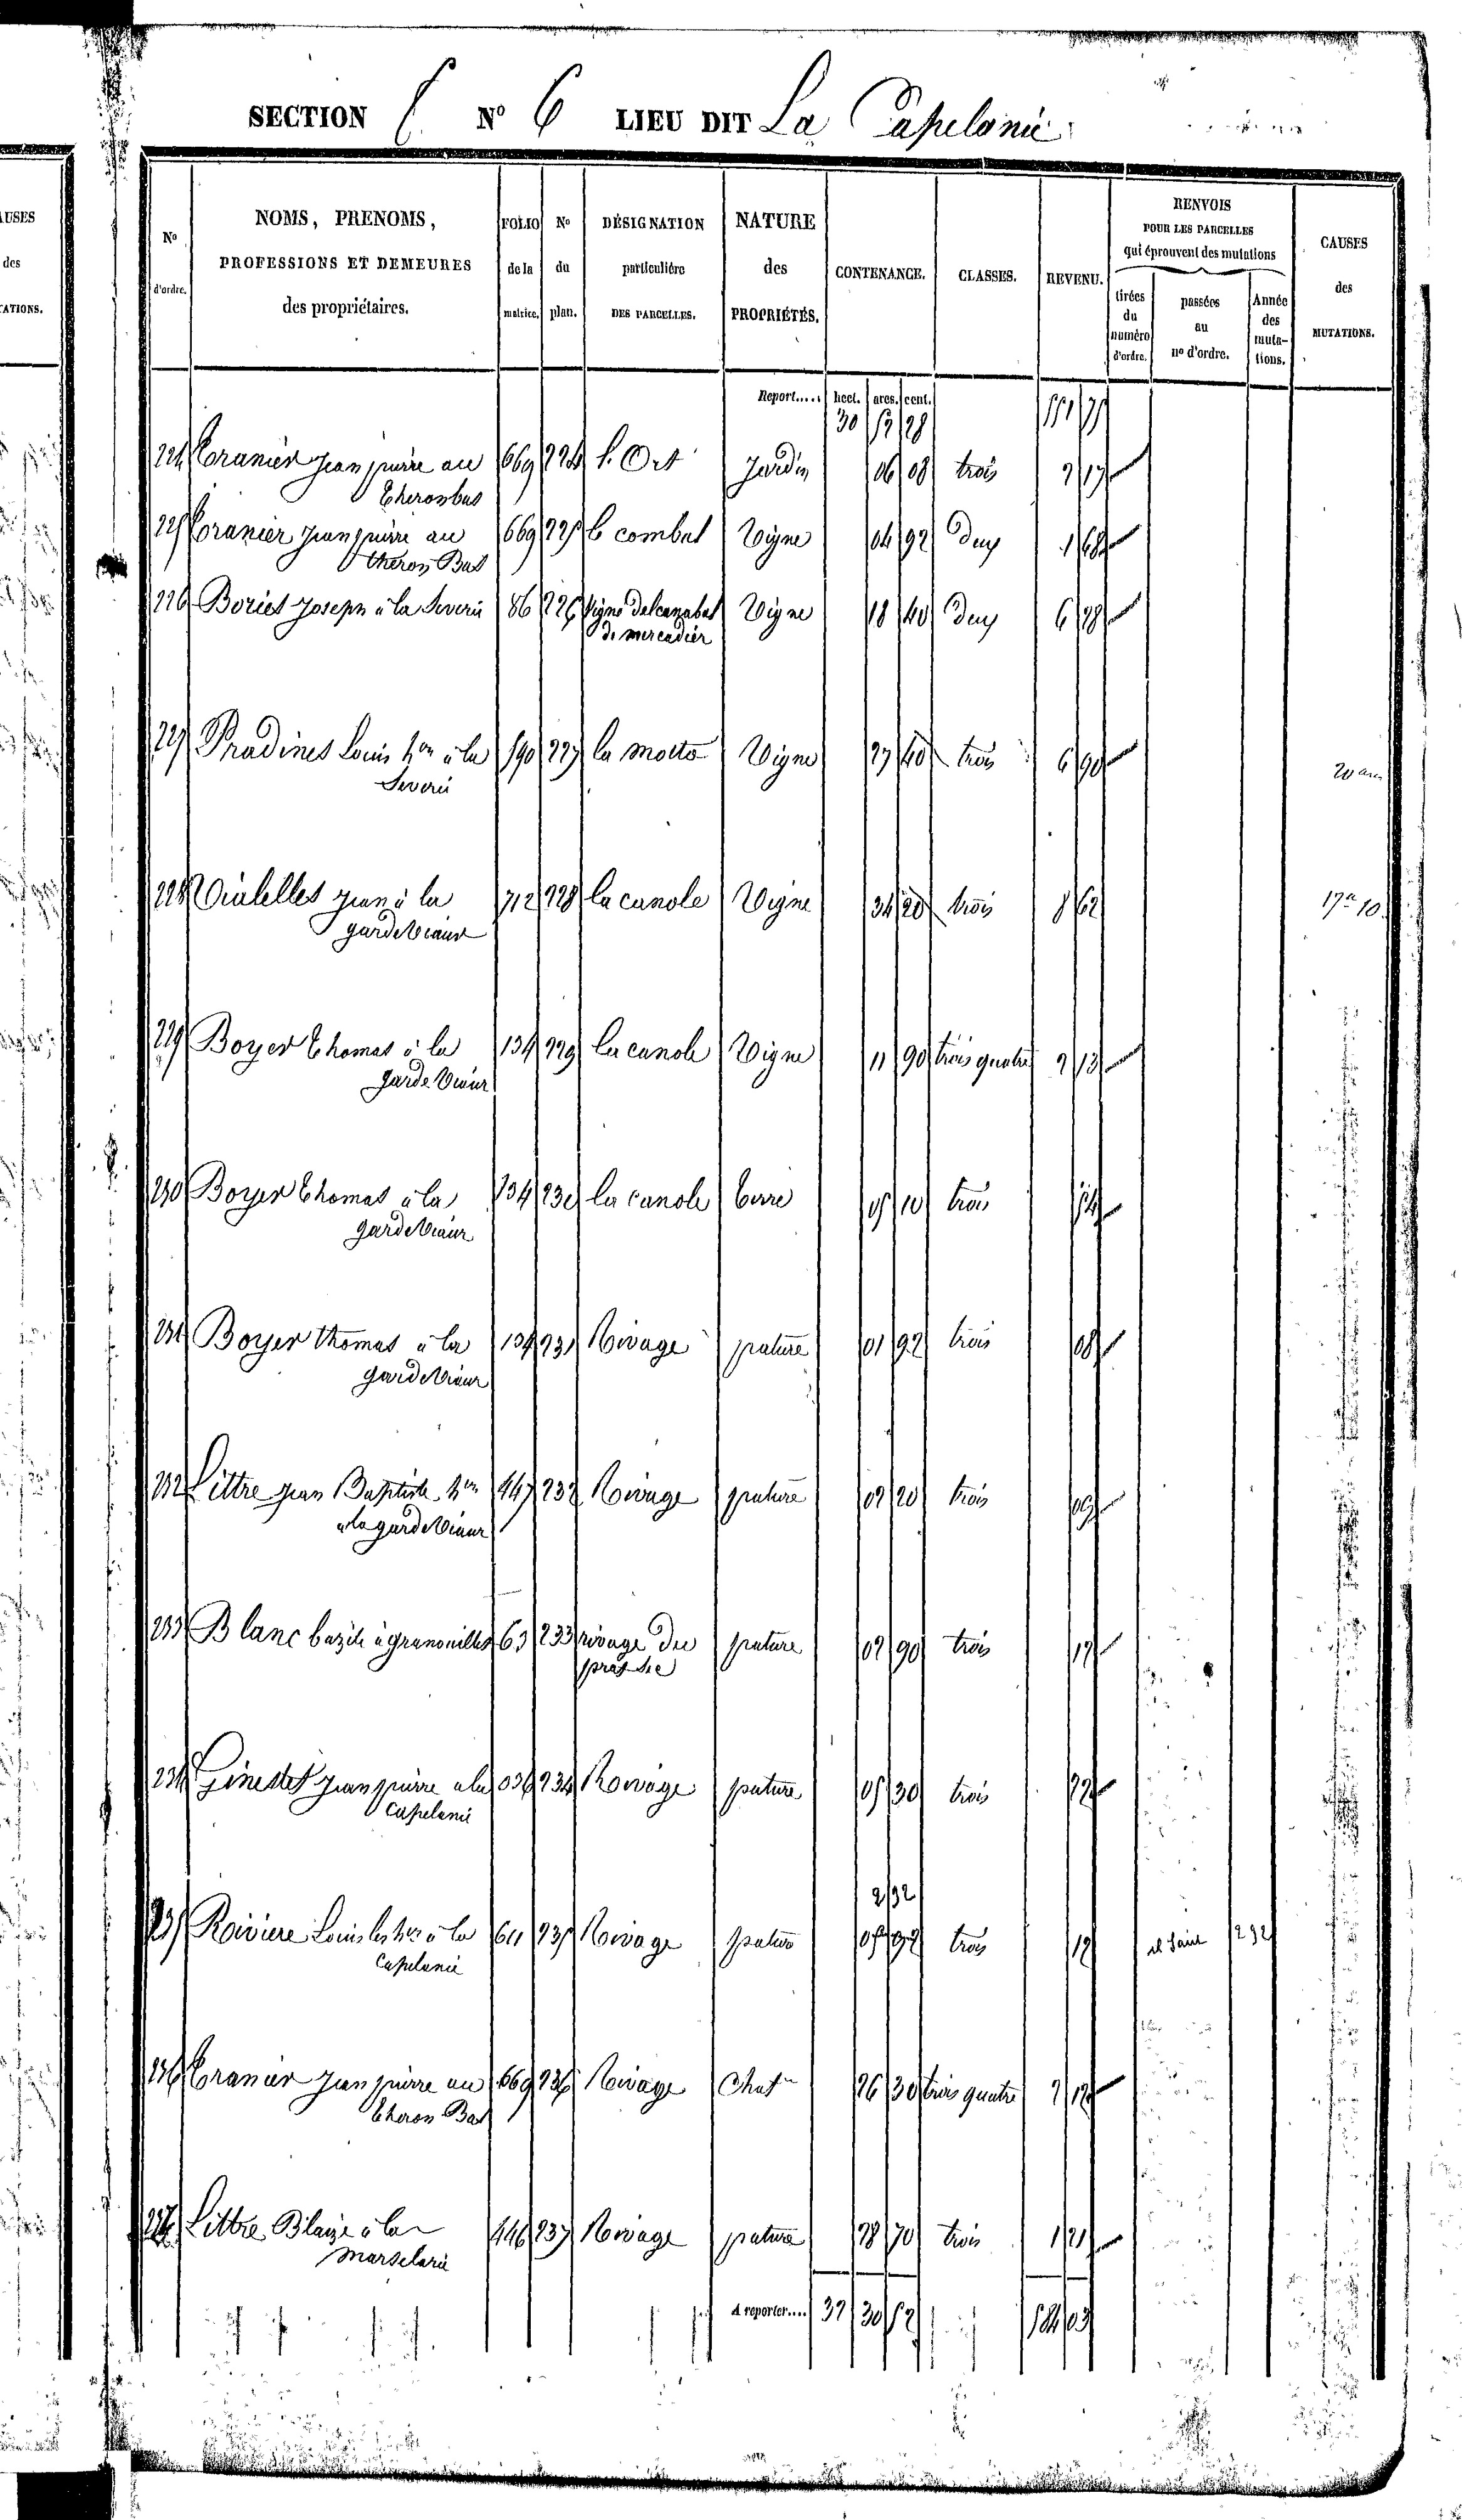 SECTION C N° 6 LIEU DIT La Capelanie
USES
des
ATIONS.
N° d'ordre.
NOMS, PRENOMS, PROFESSIONS ET DEMEURES des propriétaires.
FOLIO de la matrice.
N° du plan.
DÉSIGNATION particulière DES PARCELLES.
NATURE des PROPRIÉTÉS.
CONTENANCE.
CLASSES.
REVENU.
RENVOIS POUR LES PARCELLES qui éprouvent des mutations
tirées du numéro d'ordre.
passées au n° d'ordre.
Année des muta-tions.
CAUSES des MUTATIONS.
Report..... hect. ares. cent.
30
224 jean pierre au 669 224 l'Ort Jardin 06 08 trois 2 17
Theronbas
225 jean pierre au 669 225 combal Vigne 04 92 deux 1 68
theron Bas
226 Bories Joseph à la Severie 86 226 Vigne Vigne 18 40 deux 6 28
de mercadier
227 Pradines Louis à la 590 227 la motte Vigne 27 40 trois 6 90
Severie
228 jean à la 712 228 la canole Vigne 34 20 trois 8 62
garde Viaur
229 Boyer Thomas à la 134 229 la canole Vigne 11 90 trois quatre 2 13
garde Viaur
230 Boyer Thomas à la 134 230 la canole terre 05 10 trois
garde Viaur
231 Boyer thomas à la 134 231 Rivage pature 01 92 trois 08
garde Viaur
232 Littre jean Baptiste 447 232 Rivage pature 02 20 trois 09
à la garde Viaur
233 Blanc bazile à granouilles 63 233 rivage du pature 02 90 trois 12
234 Ginestet jean pierre à la 234 Rivage pature 05 30 trois 22
Capelanie
2 92
235 Riviere Louis à la 611 235 Rivage pature trois 12 232
Capelanie
236 jean pierre au 669 236 Rivage Chat 26 30 trois quatre 2 12
theron Bas
237 Littre Blaize à la 446 237 Rivage pature 28 70 trois 1 21
Marselarie
A reporter.... 32 30 52